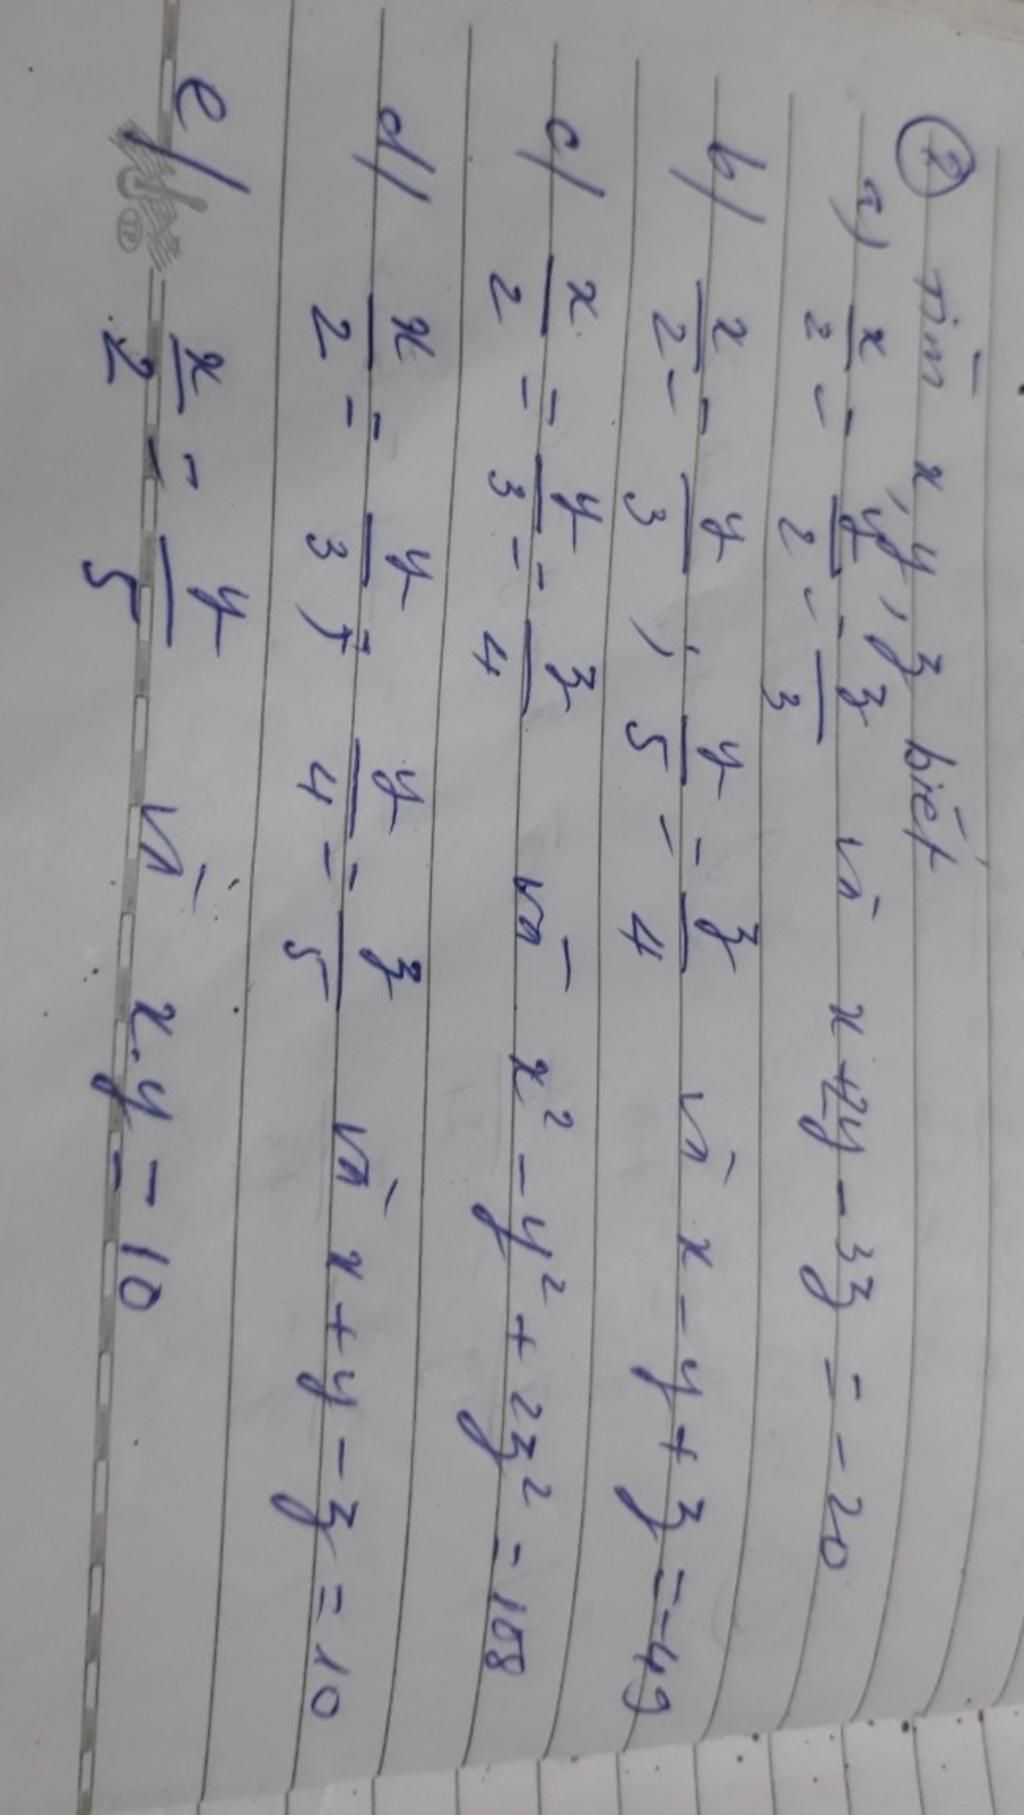 ② Tìm x, y, z biết
a) x/2 = y/2 = z/3 và x + 2y - 3z = -20
b/ x/2 = y/3, y/5 = z/4 và x - y + z = -49
c/ x/2 = y/3 = z/4 và x² - y² + 2z² = 108
d/ x/2 = y/3; y/4 = z/5 và x + y - z = 10
e/ x/2 = y/5 và x.y = 10